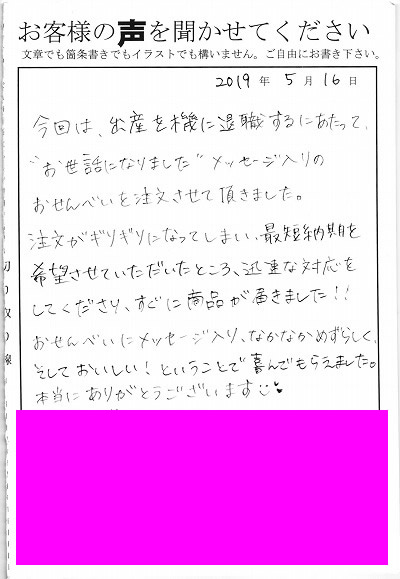 お客様の声を聞かせてください
文章でも箇条書きでもイラストでも構いません。ご自由にお書き下さい。
2019年5月16日
今回は、出産を機に退職するにあたって、
"お世話になりました"メッセージ入りの
おせんべいを注文させて頂きました。
注文がギリギリになってしまい、最短納期を
希望させていただいたところ、迅速な対応を
してくださり、すぐに商品が届きました!!
おせんべいにメッセージ入り、なかなかめずらしく、
そしておいしい!ということで喜んでもらえました。
本当にありがとうございます
切り取り線